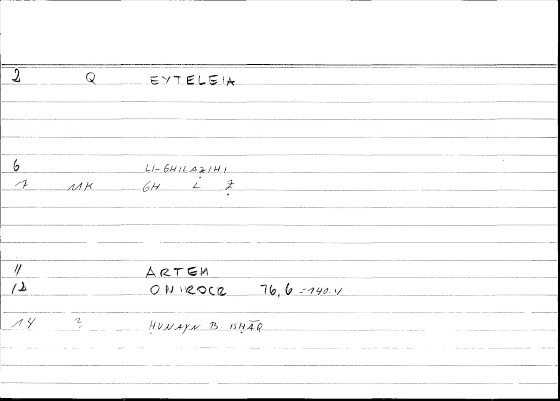 2 Q EYTELEIA
6 LI-GHILAẒIHI
7 MK GH L Ẓ
11 ARTEM
12 ONIROCR 76,6 = 140.4
14 ? ḤUNAYN B. ISḤĀQ